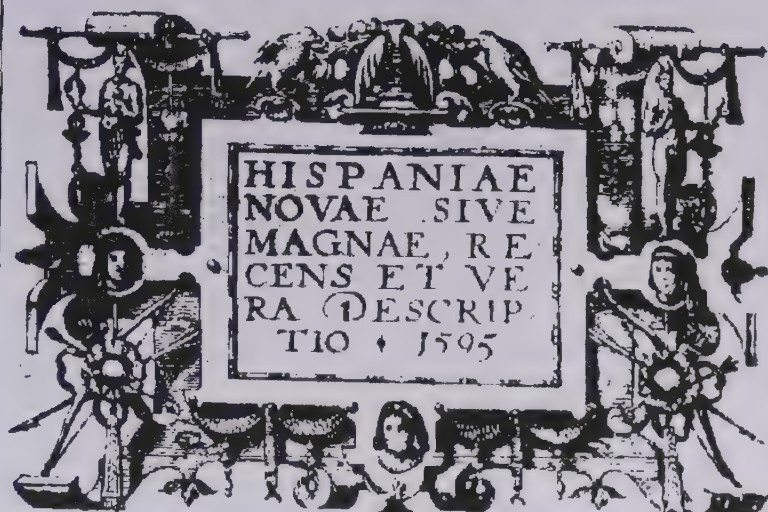 HISPANIAE
NOVAE SIVE
MAGNAE, RE
CENS ET VE
RA DESCRIP
TIO • 1595